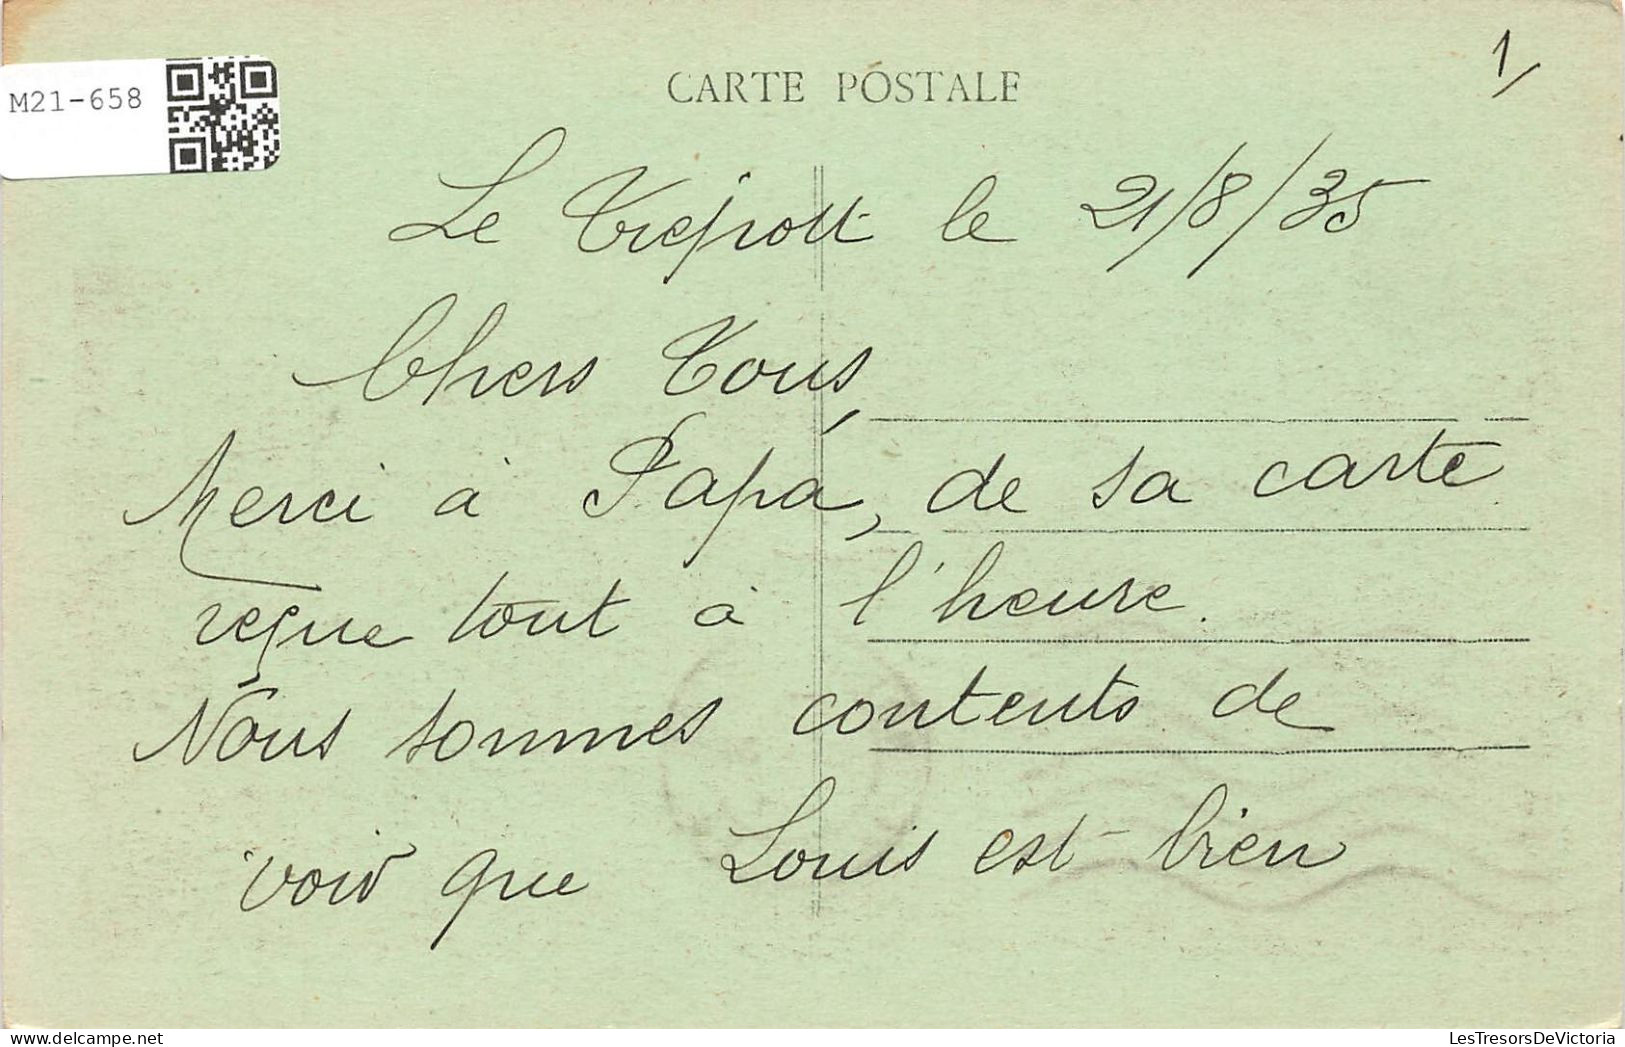 1/
M21-658
CARTE POSTALE
Le Tréport le 21/8/35
Chers Tous,
Merci à Papa, de sa carte
reçue tout à l'heure.
Nous sommes contents de
voir que Louis est bien
LesTresorsDeVictoria